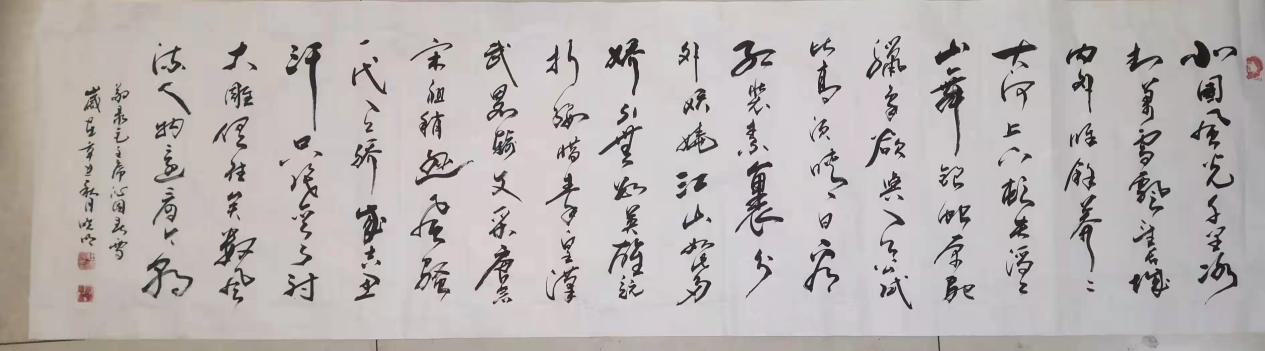 北国风光千里冰
封万里雪飘望长城
内外惟餘莽〻
大河上下頓失滔〻
山舞銀蛇原馳
蠟象欲與天公試
比高須晴日看
红裝素裹分
外妖娆江山如此多
娇引無數英雄競
折腰惜秦皇漢
武略輸文采唐宗
宋祖稍逊風骚
一代天骄成吉思
汗只识弯弓射
大雕俱往矣数風
流人物还看今朝
敬录毛主席沁园春雪
歲在辛丑秋月